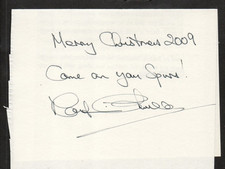 Merry Christmas 2009
Come on you Spurs!